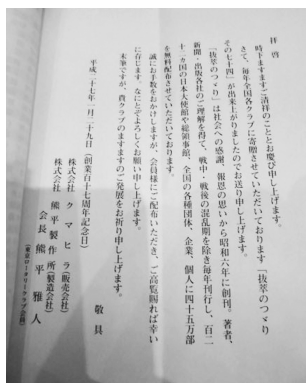 拝啓
時下ますますご清祥のこととお慶び申し上げます。
さて、毎年全国各クラブに寄贈させていただいております「抜萃のつゞり
その七十四」が出来上がりましたのでお送り申し上げます。
「抜萃のつゞり」は社会への感謝、報恩の思いから昭和六年に創刊。著者、
新聞・出版各社のご理解を得て、戦中・戦後の混乱期を除き毎年刊行し、百二
十二カ国の日本大使館や総領事館、全国の各種団体、企業、個人に四十五万部
を無料配布させていただいております。
誠にお手数をおかけしますが、会員様にご配布いただき、ご高覧賜れば幸い
に存じます。なにとぞよろしくお願い申し上げます。
末筆ですが、貴クラブのますますのご発展をお祈り申し上げます。
敬具
平成二十七年一月二十九日(創業百十七周年記念日)
株式会社 クマヒラ(販売会社)
株式会社 熊平製作所(製造会社)
会長 熊平雅人
(東京ロータリークラブ会員)